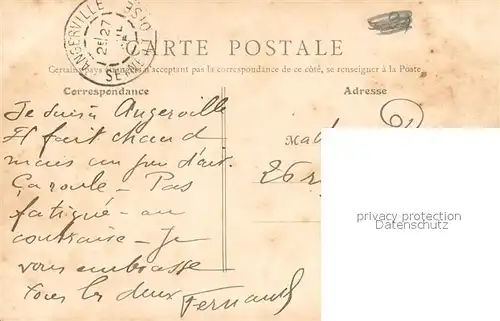 ANGERVILLE
SEINE-ET-OISE
25 27
CARTE POSTALE
Certains pays étrangers n'acceptant pas la correspondance de ce côté, se renseigner à la Poste
Correspondance
Adresse
Je suis à Angerville
Il fait chaud
mais un peu d'air.
Ça roule - Pas
fatigué - au
contraire - Je
vous embrasse
tous les deux
Fernand
Ma
26 r
privacy protection
Datenschutz